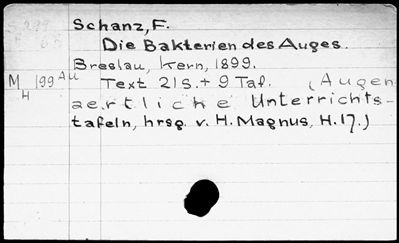 Schanz, F.
Die Bakterien des Auges.
Breslau, Kern, 1899.
M 199 Au Text 21 S. + 9 Taf. (Augen
H aertliche Unterrichts-
tafeln, hrsg. v. H. Magnus, H. 17.)